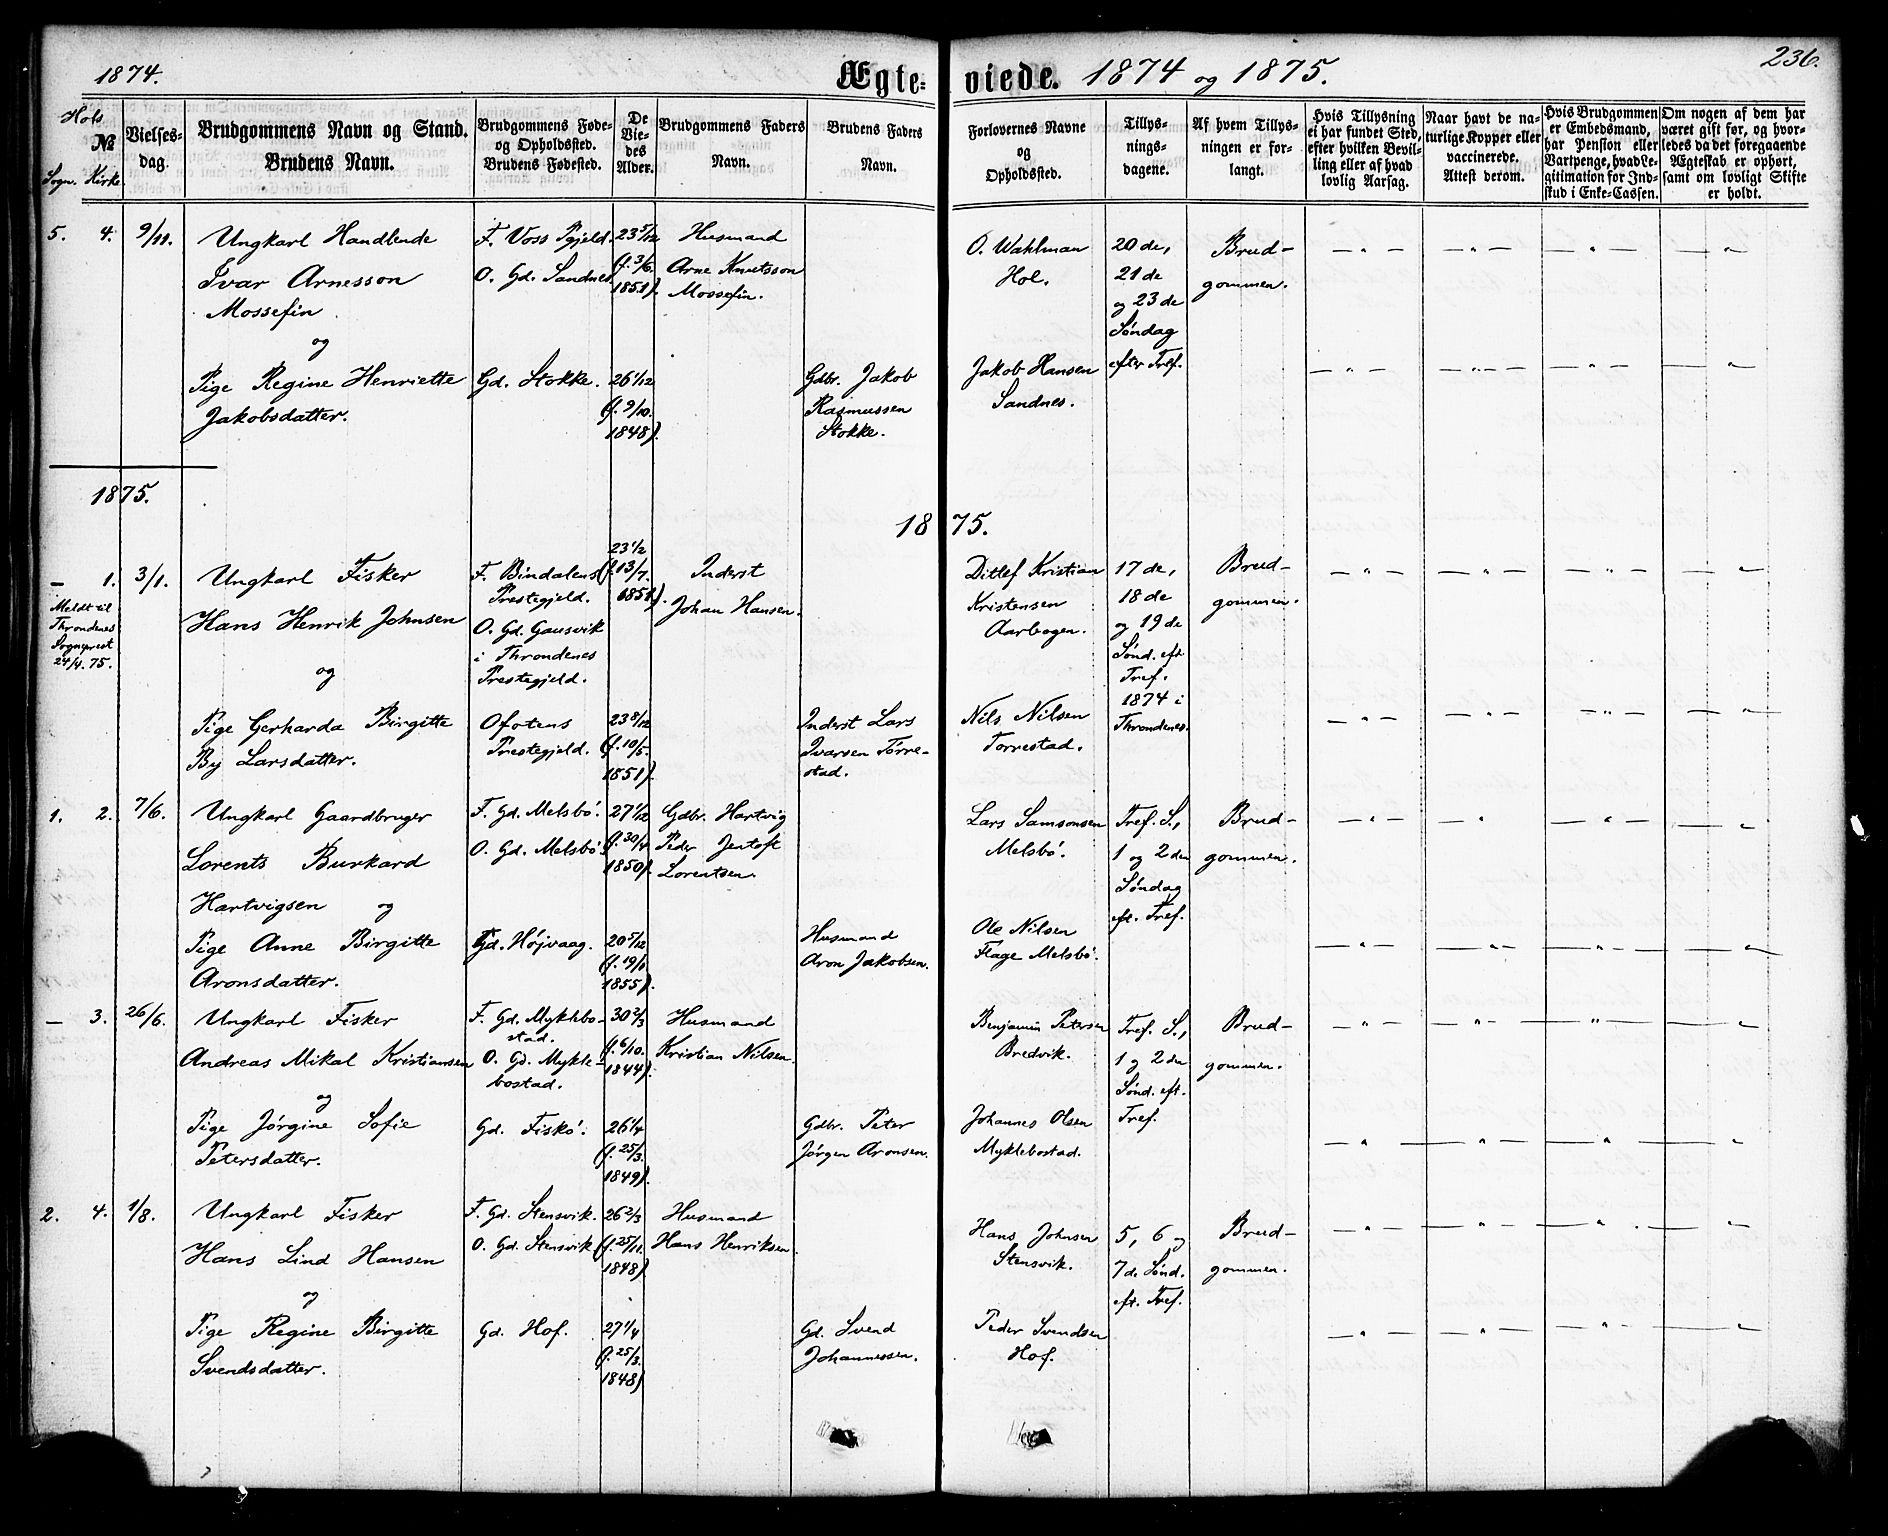 1874.
Ægte-
viede. 1874 og 1875.
236.
Hols
№
Sogn. Kirke.
Vielses-
dag.
Brudgommens Navn og Stand.
Brudens Navn.
Brudgommens Føde-
og Opholdssted.
Brudens Fødested.
De
Vie-
des
Alder.
Brudgommens Faders
Navn.
Brudens Faders
Navn.
Forlovernes Navne
og
Opholdssted.
Tillys-
nings-
dagene.
Af hvem Tillys-
ningen er for-
langt.
Hvis Tillysning
ei har fundet Sted,
efter hvilken Bevil-
ling eller af hvad
lovlig Aarsag.
Naar havt de na-
turlige Kopper eller
vaccinerede.
Attest derom.
Hvis Brudgommen
er Embedsmand,
har Pension eller
Vartpenge, hvad Le-
gitimation for Ind-
skud i Enke-Cassen.
Om nogen af dem har
været gift før, og hvor-
ledes da det foregaaende
Ægteskab er ophørt,
samt om lovligt Skifte
er holdt.
5. 4. 9/11.
Ungkarl Handlende
Ivar Arnesson
Mossefin
og
Pige Regine Henriette
Jakobsdatter.
F. Voss Pgjeld.
O. Gd. Sandnes.
Gd. Stokke.
23 5/12
(f. 3/6.
1851).
26 1/12
(f. 9/10.
1848).
Husmand
Arne Knutsson
Mossefin.
Gdbr. Jakob
Rasmussen
Stokke.
O. Wahlman
Hol.
Jakob Hansen
Sandnes.
20de,
21de
og 23de
Søndag
efter Tref.
Brud-
gommen.
1875.
1875.
— 1. 3/1.
Meldt til
Throndenes
Sogneprest
24/4. 75.
Ungkarl Fisker
Hans Henrik Johnsen
og
Pige Gerharda Birgitte
By Larsdatter.
F. Bindalens
Prestegjeld.
O. Gd. Gausvik
i Throndenes
Prestegjeld.
Ofotens
Prestegjeld.
23 1/2
(f. 13/7.
1851).
23 8/12
(f. 10/5.
1851).
Inderst
Johan Hansen.
Inderst Lars
Ivarsen Tørre-
stad.
Ditlef Kristian
Kristensen
Aarbogen.
Nils Nilsen
Torrestad.
17de,
18de
og 19de
Sønd. eft
Tref.
1874 i
Throndenes.
Brud-
gommen.
1. 2. 7/6.
Ungkarl Gaardbruger
Lorents Burkard
Hartvigsen og
Pige Anne Birgitte
Aronsdatter.
F. Gd. Melsbö.
O. Gd. Melsbö.
Gd. Højvaag.
27 1/12
(f. 30/4
1850).
20 5/12
(f. 19/1
1855).
Gdbr. Hartvig
Peder Jentoft
Lorentsen.
Husmand
Aron Jakobsen.
Lars Samsonsen
Melsbö.
Ole Nilsen
Flage Melsbö.
Tref. S.,
1 og 2den
Søndag
eft. Tref.
Brud-
gommen.
— 3. 26/6.
Ungkarl Fisker
Andreas Mikal Kristiansen
og
Pige Jørgine Sofie
Petersdatter.
F. Gd. Myklebo-
stad.
O. Gd. Mykle-
bostad.
Gd. Fiskö.
30 2/3
(f. 6/10.
1844).
26 1/4
(f. 25/3.
1849).
Husmand
Kristian Nilsen.
Gdbr. Peter
Jørgen Aronsen.
Benjamin Petersen
Bredvik.
Johannes Olsen
Myklebostad.
Tref. S.,
1 og 2den
Sønd. eft.
Tref.
Brud-
gommen.
2. 4. 1/8.
Ungkarl Fisker
Hans Lind Hansen
og
Pige Regine Birgitte
Svendsdatter.
F. Gd. Stensvik.
O. Gd. Stensvik
Gd. Hof.
26 2/3
(f. 25/11.
1848)
27 1/4
(f. 25/3.
1848)
Husmand
Hans Henriksen.
Gd. Svend
Johannessen.
Hans Johnsen
Stensvik.
Peder Svendsen
Hof.
5, 6 og
7de Sønd.
eft. Tref.
Brud-
gommen.